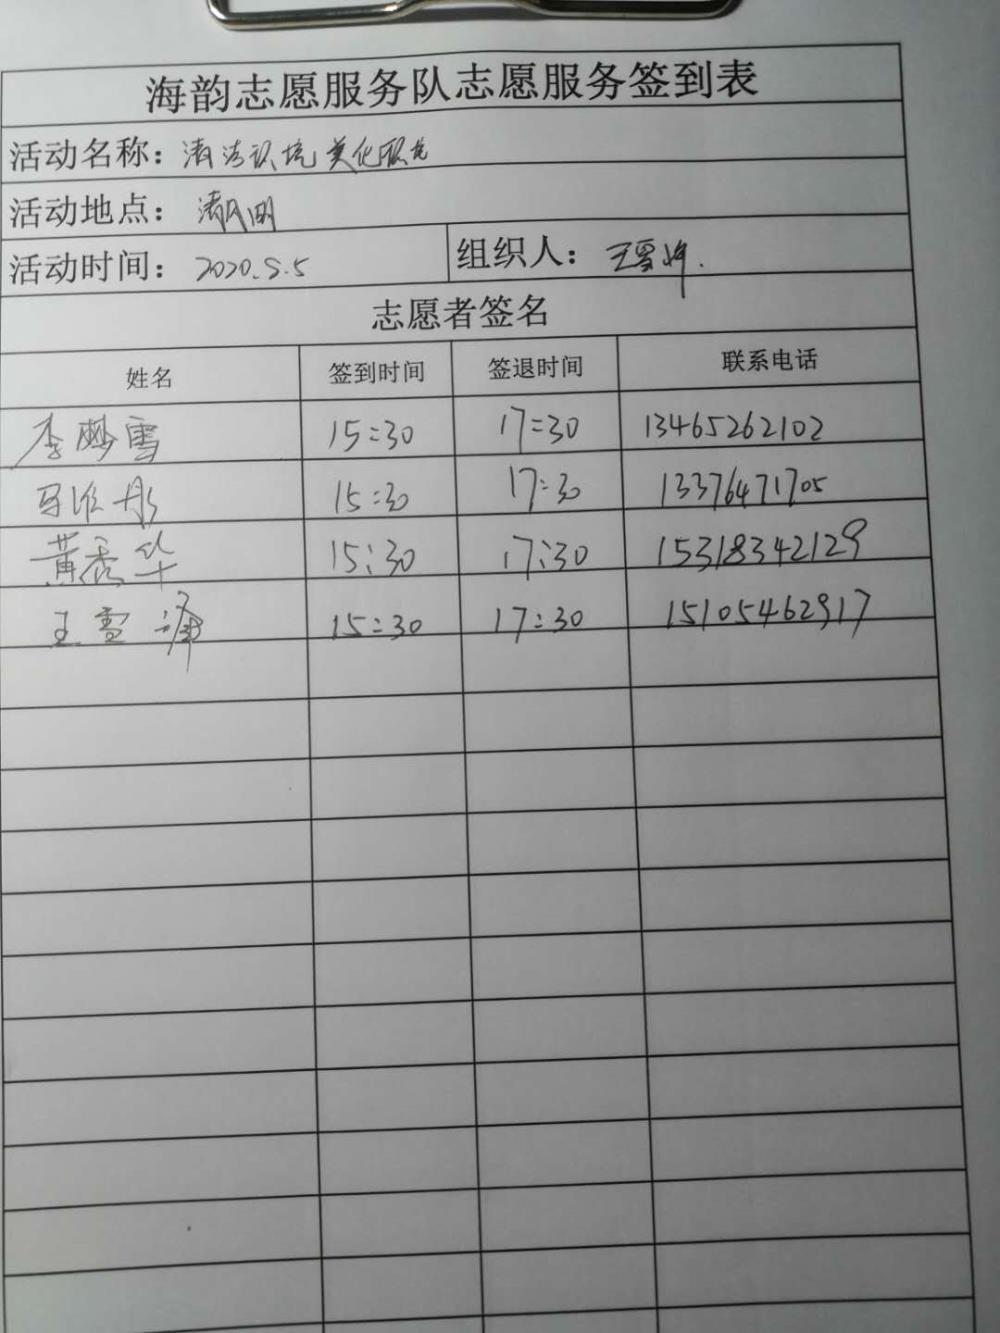 海韵志愿服务队志愿服务签到表
活动名称：清洁环境 美化
活动地点：清风湖
活动时间：2020.5.5 组织人：王雪婷
志愿者签名
姓名 签到时间 签退时间 联系电话
李梦雪 15:30 17:30 13465262102
马 彤 15:30 17:30 13376471705
黄秀华 15:30 17:30 15318342129
王雪 15:30 17:30 15105462917